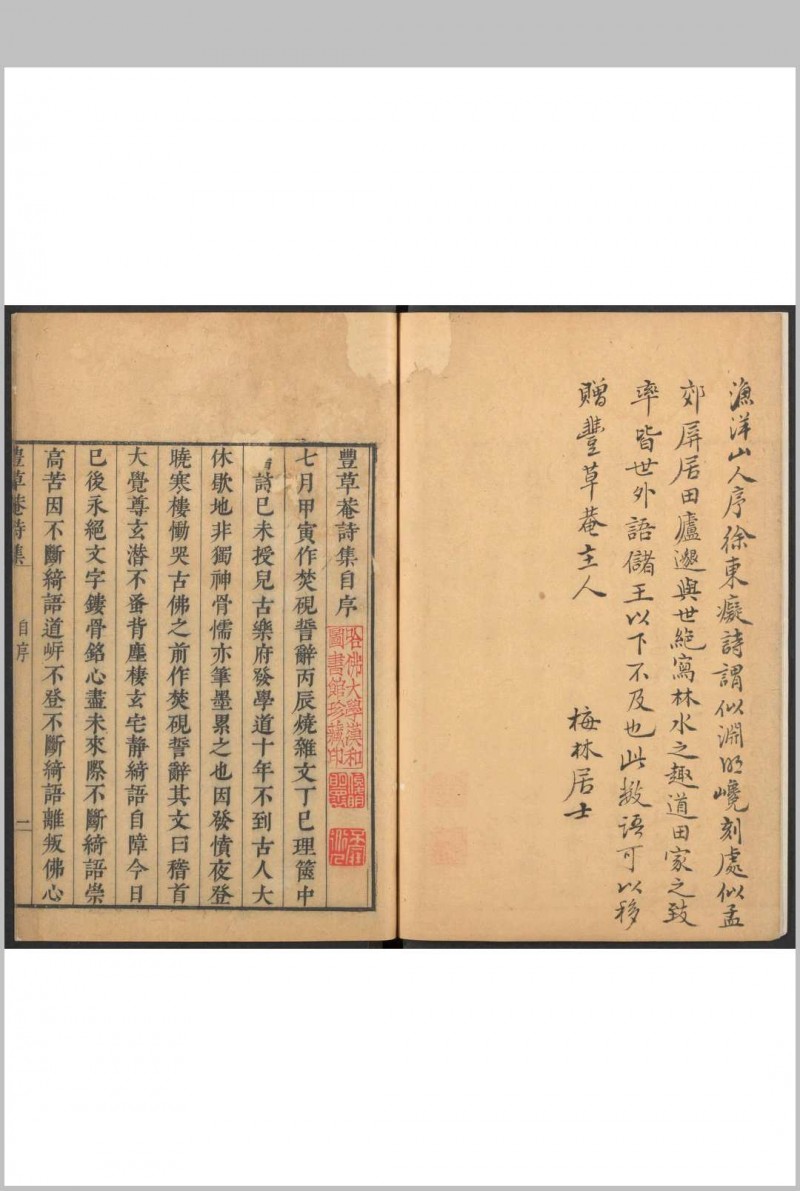 漁洋山人序徐東癡詩謂似淵明巉刻處似孟
郊屏居田廬邈與世絕寫林水之趣道田家之致
率皆世外語儲王以下不及也此數語可以移
贈豐草菴主人
梅林居士
豐草菴詩集自序
哈佛大學漢和
圖書館珍藏印
七月甲寅作焚硯誓辭丙辰燒雜文丁巳理篋中
詩巳未授兒古樂府發學道十年不到古人大
休歇地非獨神骨懦亦筆墨累之也因發憤夜登
曉寒樓慟哭古佛之前作焚硯誓辭其文曰稽首
大覺尊玄潛不蚤背塵棲玄宅靜綺語自障今日
巳後永絕文字鏤骨銘心盡未來際不斷綺語崇
高苦因不斷綺語道岸不登不斷綺語離叛佛心
豐草菴詩集
自序